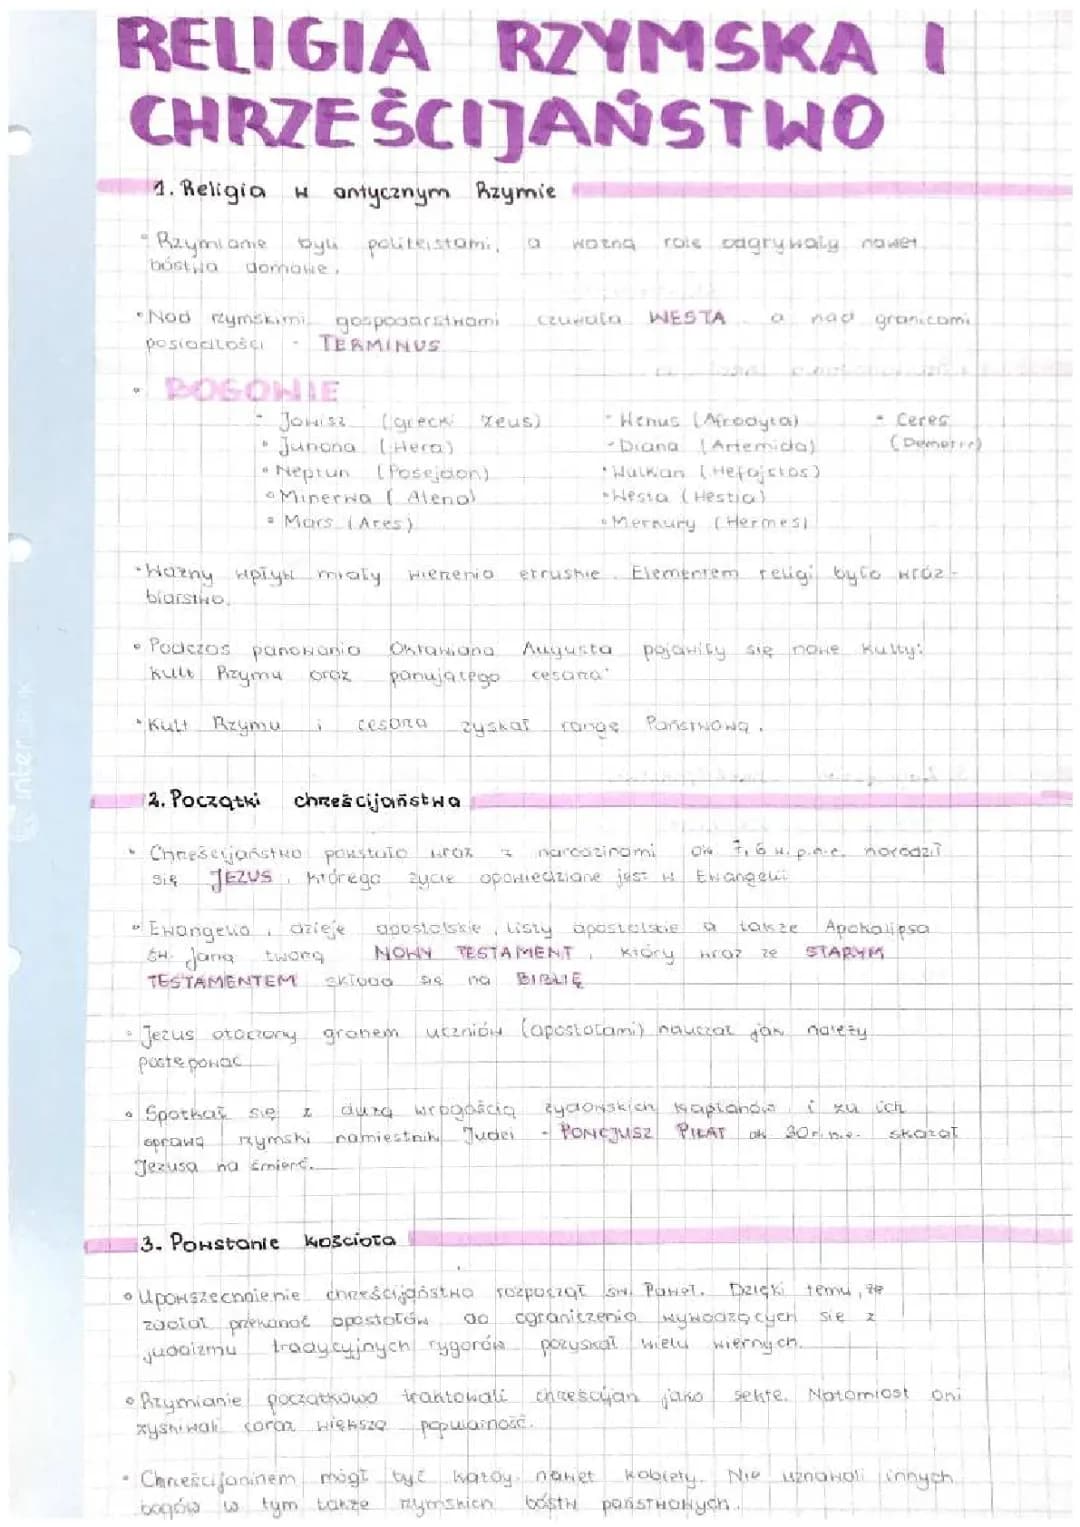 RELIGIA RZYMSKA I
CHRZEŚCIJAŃSTWO
1. Religia w antycznym Rzymie
Rzymianie byli politeistami, a ważną role odgrywały nawet
bóstwa domowe.
Nad rzymskimi gospodarstwami czuwała WESTA a nad granicami
posiadłości - TERMINUS
BOGOWIE
Jowisz (grecki Zeus)
Junona (Hera)
Neptun (Posejdon)
Minerwa (Atena)
Mars (Ares)
Wenus (Afrodyta)
Diana (Artemida)
Wulkan (Hefajstos)
Westa (Hestia)
Merkury (Hermes)
Ceres
(Demeter)
Ważny wpływ miały wierzenia etruskie. Elementem religi było wróż-
biarstwo.
Podczas panowania Oktawiana Augusta pojawiły się nowe kulty:
kult Rzymu oraz panującego cesarza
Kult Rzymu i cesarza zyskał rangę Państwową.
interdruk
2. Początki chrześcijaństwa
Chrześcijaństwo powstało wraz z narodzinami ok 7, 6 w. p.n.e. narodził
się JEZUS, którego życie opowiedziane jest w Ewangelii
Ewangelia, dzieje apostolskie, listy apostolskie a także Apokalipsa
św. Jana tworzą NOWY TESTAMENT, który wraz ze STARYM
TESTAMENTEM składa się na BIBLIĘ
Jezus otoczony gronem uczniów (apostołami) nauczał jak należy
postępować
Spotkał się z dużą wrogością żydowskich kapłanów i za ich
sprawą rzymski namiestnik Judei - PONCJUSZ PIŁAT ok 30 r. n.e. skazał
Jezusa na śmierć.
3. Powstanie kościoła
Upowszechnienie chrześcijaństwa rozpoczął św. Paweł. Dzięki temu, że
zdołał przekonać apostołów do ograniczenia wywodzących się z
judaizmu tradycyjnych rygorów pozyskał wielu wiernych.
Rzymianie początkowo traktowali chrześcijan jako sekte. Natomiast oni
zyskiwali coraz większą popularność.
Chrześcijaninem mógł być każdy, nawet kobiety. Nie uznawali innych
bogów w tym także rzymskich bóstw państwowych.